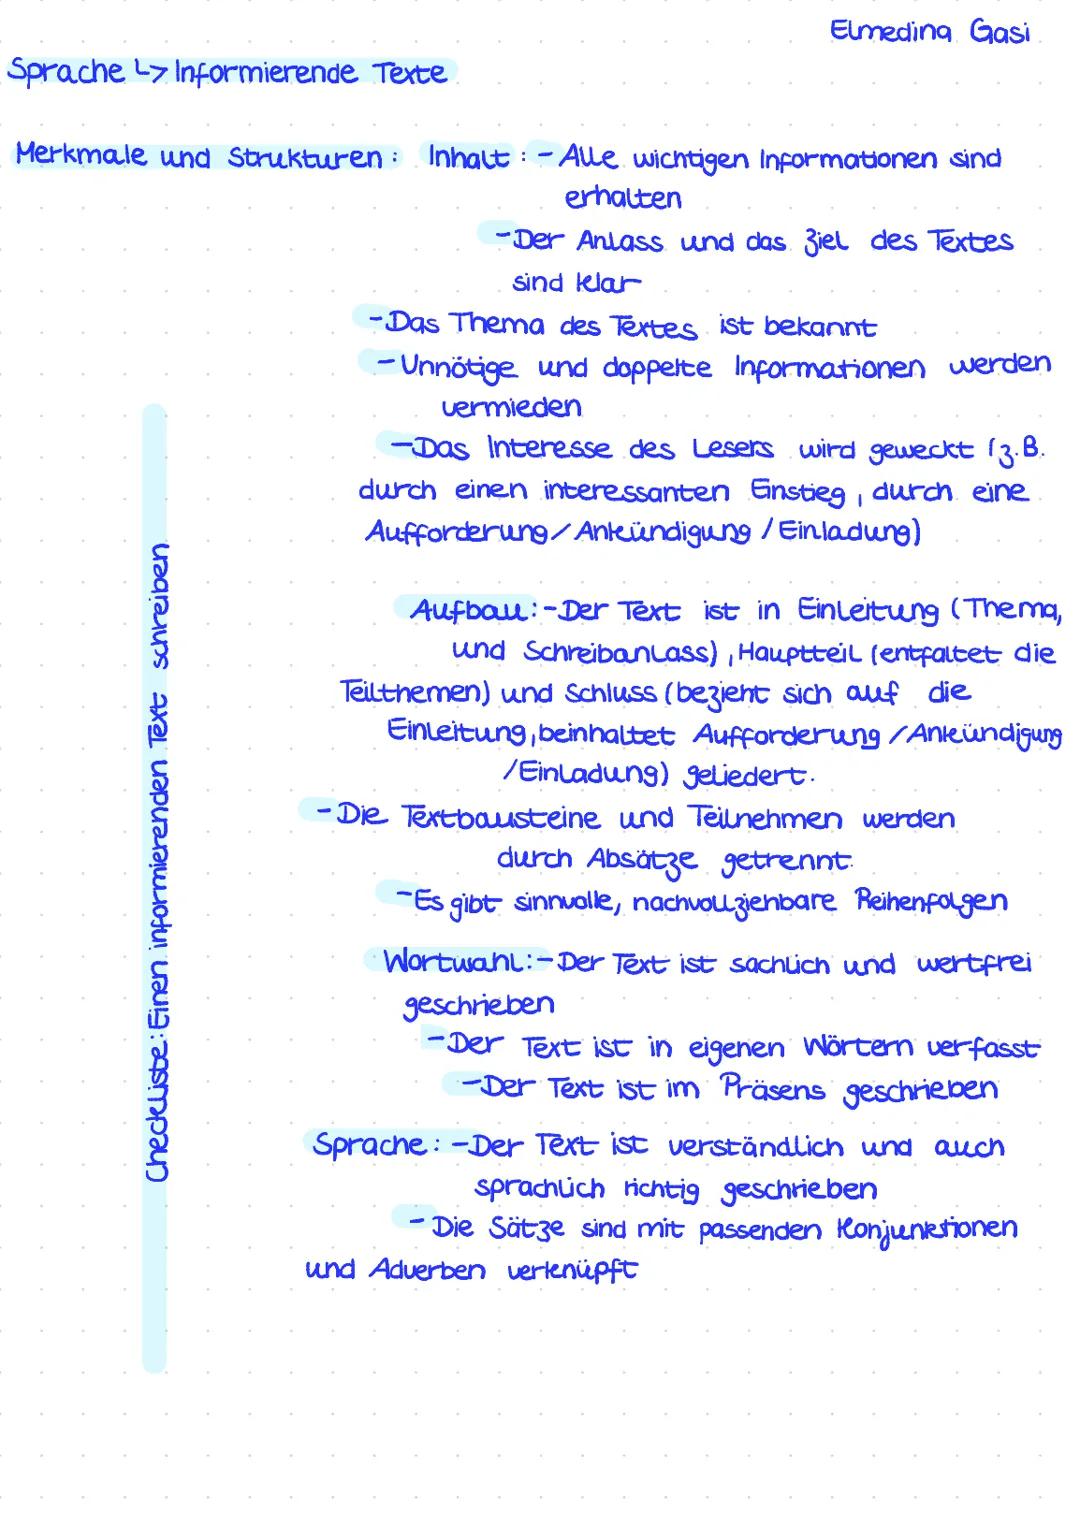 Elmedina Gasi
Sprache ↳ Informierende Texte
Merkmale und Strukturen: Inhalt: - Alle wichtigen Informationen sind
erhalten
- Der Anlass und das Ziel des Textes
sind klar
- Das Thema des Textes ist bekannt
- Unnötige und doppelte Informationen werden
vermieden
- Das Interesse des Lesers wird geweckt (z.B.
durch einen interessanten Einstieg, durch eine
Aufforderung/Ankündigung/Einladung)
Aufbau: - Der Text ist in Einleitung (Thema,
und Schreibanlass), Hauptteil (entfaltet die
Teilthemen) und Schluss (bezieht sich auf die
Einleitung, beinhaltet Aufforderung/Ankündigung
/Einladung) geliedert.
- Die Textbausteine und Teilnehmen werden
durch Absätze getrennt
- Es gibt sinnvolle, nachvollziehbare Reihenfolgen
Wortwahl: - Der Text ist sachlich und wertfrei
geschrieben
- Der Text ist in eigenen Wörtern verfasst
- Der Text ist im Präsens geschrieben
Sprache: - Der Text ist verständlich und auch
sprachlich richtig geschrieben
- Die Sätze sind mit passenden Konjunktionen
und Adverben verknüpft
Checkliste: Einen informierenden Text schreiben